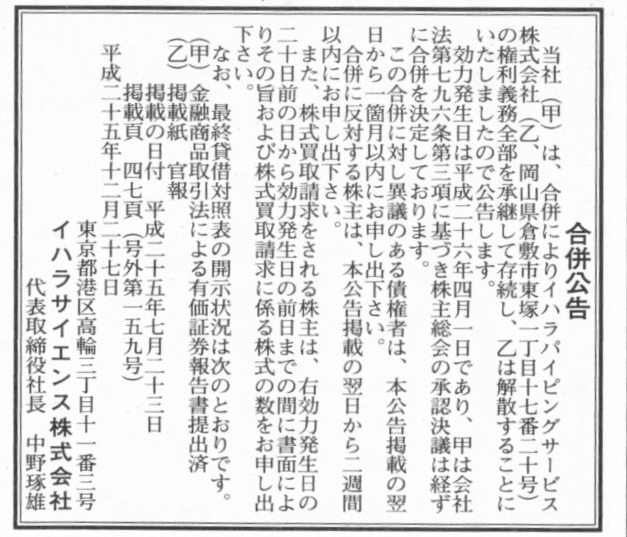 合併公告
当社（甲）は、合併によりイハラパイピングサービス
株式会社（乙、岡山県倉敷市東塚一丁目十七番二十号）
の権利義務全部を承継して存続し、乙は解散することに
いたしましたので公告します。
効力発生日は平成二十六年四月一日であり、甲は会社
法第七九六条第三項に基づき株主総会の承認決議は経ず
に合併を決定しております。
この合併に対し異議のある債権者は、本公告掲載の翌
日から一箇月以内にお申し出下さい。
合併に反対する株主は、本公告掲載の翌日から二週間
以内にお申し出下さい。
また、株式買取請求をされる株主は、右効力発生日の
二十日前の日から効力発生日の前日までの間に書面によ
りその旨および株式買取請求に係る株式の数をお申し出
下さい。
なお、最終貸借対照表の開示状況は次のとおりです。
（甲）金融商品取引法による有価証券報告書提出済
（乙）掲載紙　官報
掲載の日付　平成二十五年七月二十三日
掲載頁　四七頁（号外第一五九号）
平成二十五年十二月二十七日
東京都港区高輪三丁目十一番三号
イハラサイエンス株式会社
代表取締役社長　中野琢雄